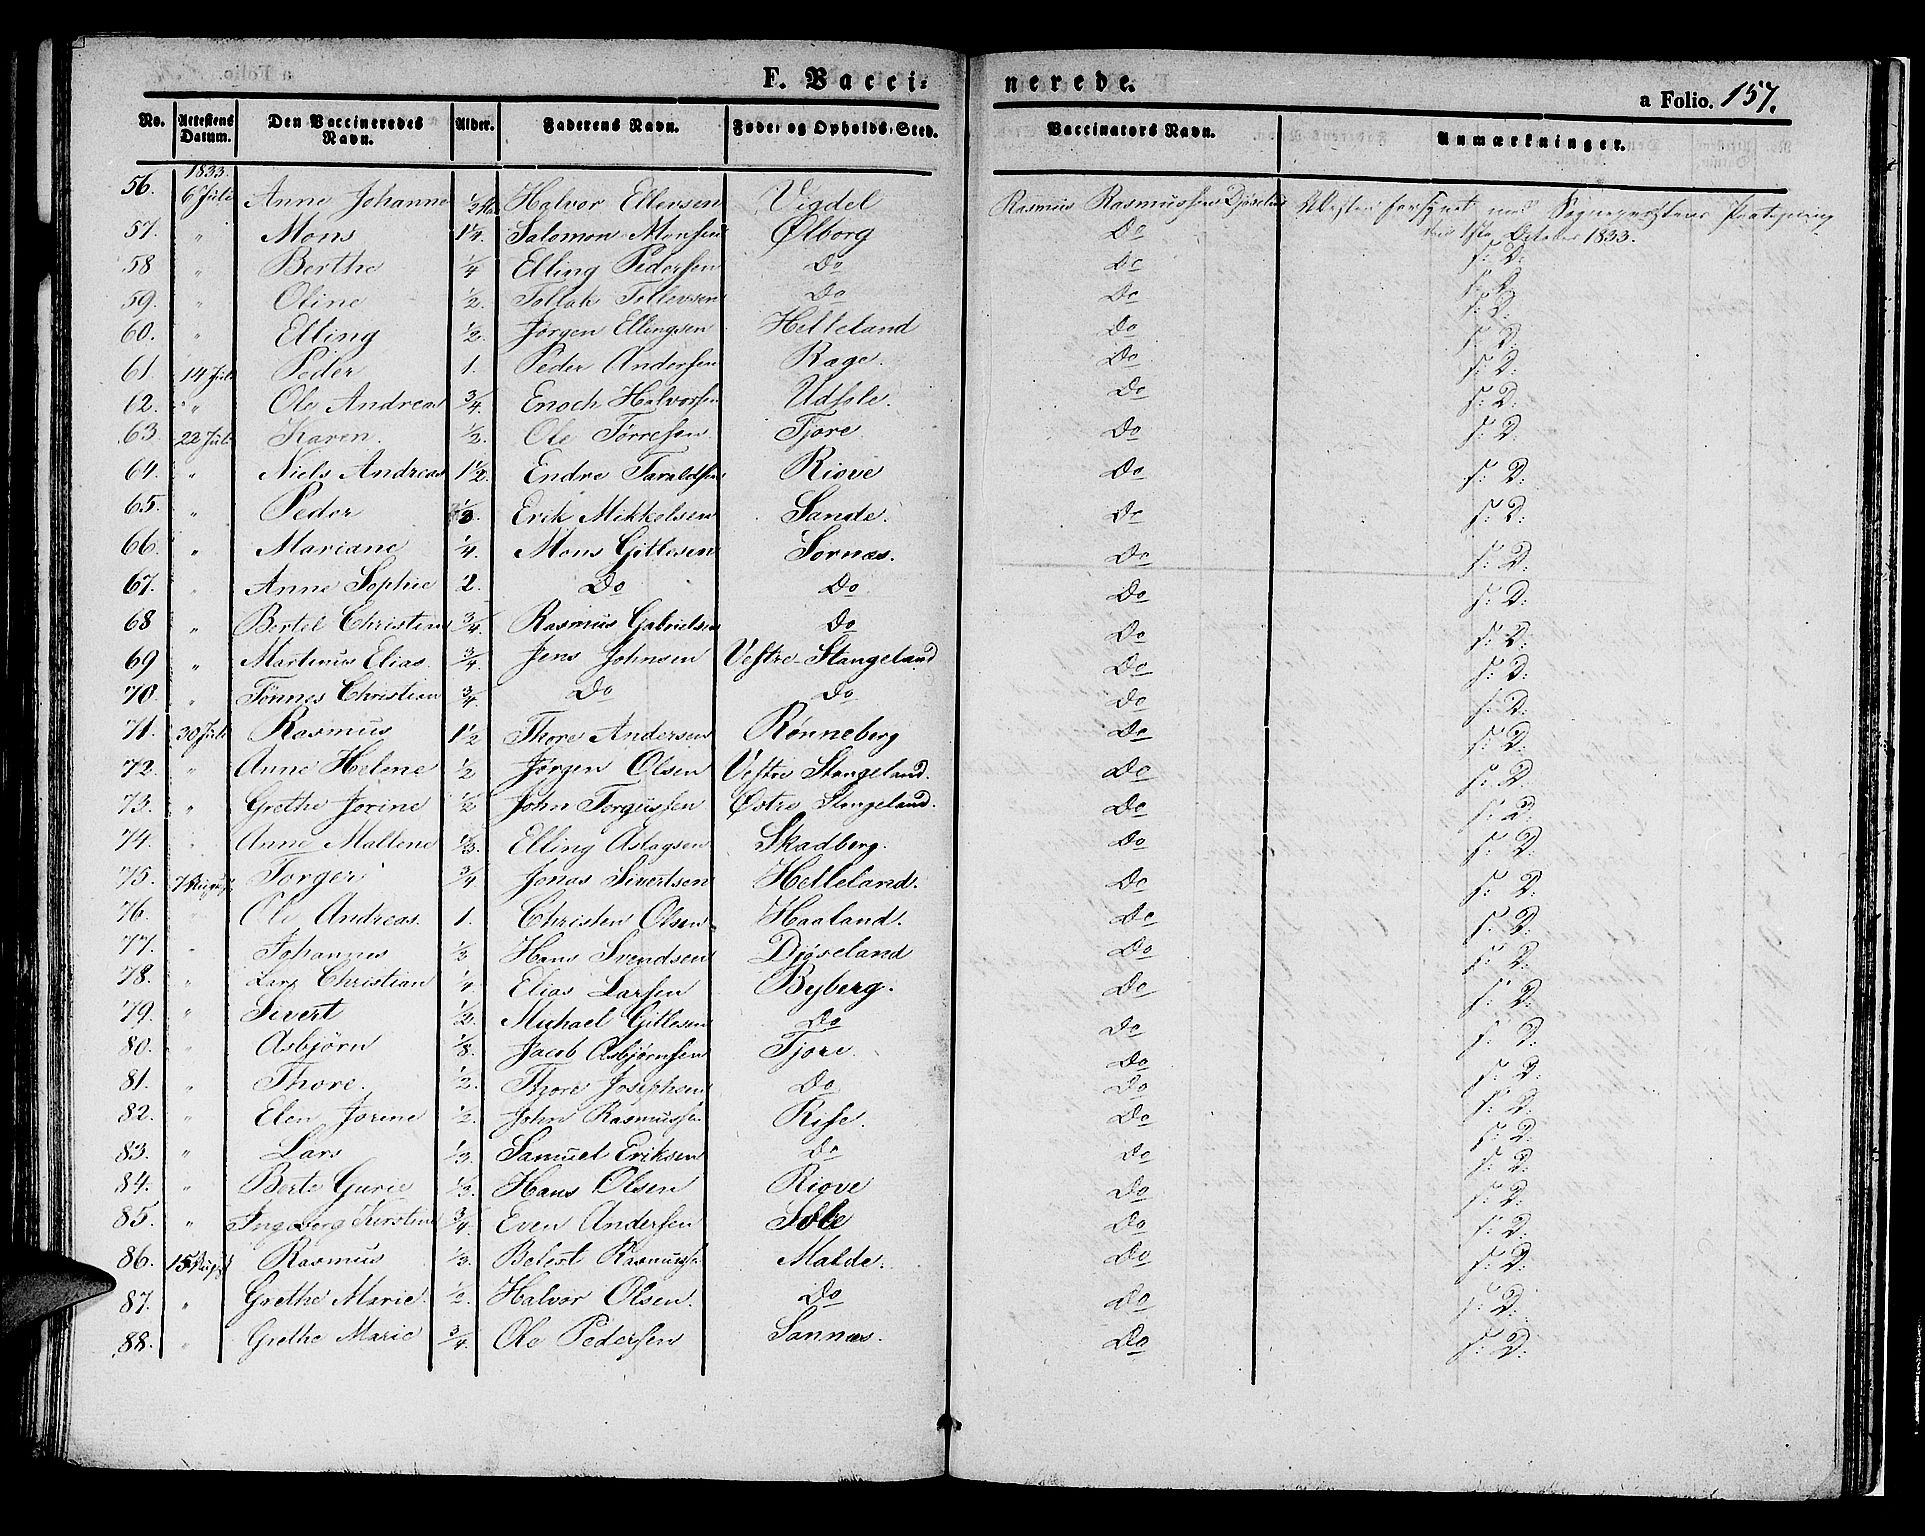 F. Vaccinerede.
a Folio. 157.
No. Attestens Datum. Den Vaccineredes Navn. Alder. Faderens Navn. Føde- og Opholds-Sted. Vaccinators Navn. Anmærkninger.
1833.
56. 6 Juli Anne Johanne 1/2 Halvor Ellensen Vigdel Rasmus Rasmussen forsynet med Sognepræstens Paategning
57. " Mons 1 1/4. Salomon Monsen Ølborg Do October 1833.
58 " Berthe 1/4 Elling Pedersen Do Do s: D:
59. " Oline 1/2. Tollak Tollevsen Do Do s: D:
60. " Elling 1/2. Jørgen Ellingsen Helleland Do s: D:
61. 14 Juli Peder 1. Peder Andersen Rage. Do s: D:
62. " Ole Andreas 3/4. Enoch Halvorsen Udsole. Do s: D:
63. 22 Juli Karen. 1/2. Ole Tørresen Tjore. Do s: D:
64. " Niels Andreas 1 1/2. Endre Taraldsen Riove Do s: D:
65. " Peder 1/3. Erik Mikkelsen Sande. Do s: D:
66. " Mariane 1/4. Mons Gitlesen Sornæs. Do s: D:
67. " Anne Sophie 2. Do Do Do s: D:
68 " Bertel Christian 3/4. Rasmus Gabrielsen Do Do s: D:
69 " Martinus Elias. 3/4. Jens Johnsen Vestre Stangeland Do s: D:
70. " Tønnes Christian 3/4. Do Do Do s: D:
71. 30 Juli Rasmus 1 1/2 Thore Andersen Rønneberg Do s: D:
72. " Anne Helene 1/2 Jørgen Olsen Vestre Stangeland. Do s: D:
73. " Grethe Jorine 1/2 John Torgussen Østre Stangeland. Do s: D:
74. Anne Mallene 1/3. Elling Aslagsen Skadberg. Do s: D:
75. 7 August Torger 3/4 Jonas Sivertsen Helleland. Do s: D:
76. " Ole Andreas. 1. Christen Olsen Haaland. Do s: D:
77. " Johannes 1/3 Hans Svendsen Djøseland Do s: D:
78. " Lars Christian 1/4. Elias Larsen Byberg. Do s: D:
79. " Sivert 1/2. Michael Gitlesen Do Do s: D:
80. " Asbjørn 1/8. Jacob Asbjørnsen Tjore. Do s: D:
81. " Thore. 1/2. Thore Josephsen Do Do s: D:
82. " Elen Jorine 1/2. John Rasmussen Risse. Do s: D:
83. " Lars 1/3. Samuel Eriksen Do Do s: D:
84. " Berte Gurie 1/3. Hans Olsen Riove Do s: D:
85. " Ingeborg Kirstine 3/4. Even Andersen Sole Do s: D:
86. 15 August Rasmus 1/3. Belest Rasmussen Malde. Do s: D:
87. " Grethe Marie. 1/2. Halvor Olsen. Do Do s: D:
88. " Grethe Marie 3/4. Ole Pedersen Sannæs. Do s: D: